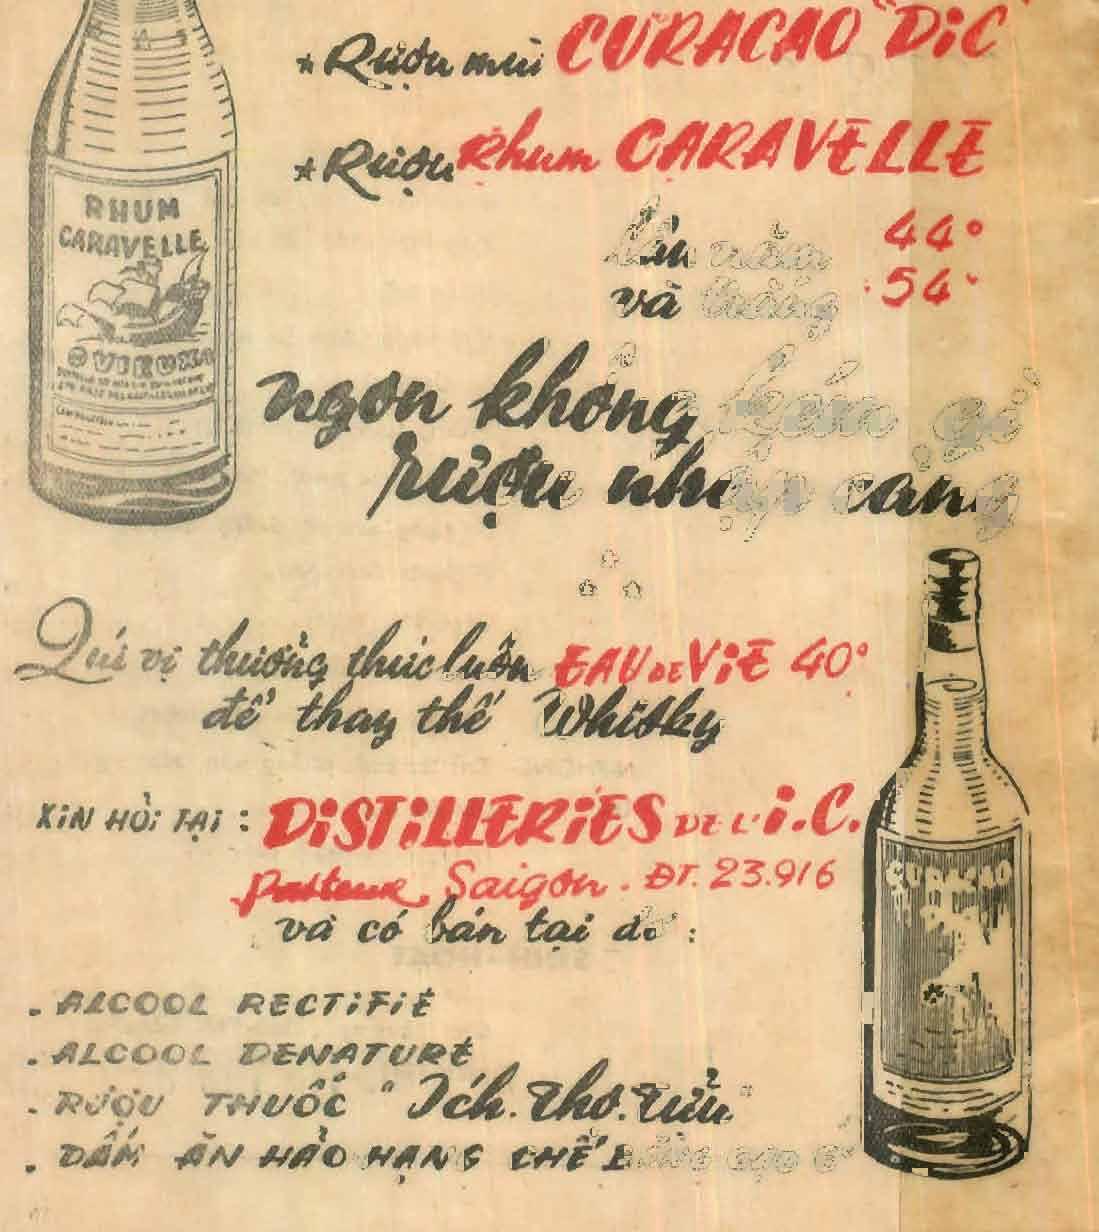 ★ Rượu mùi CURACAO "DIC"
★ Rượu Rhum CARAVELLE
44°
và trắng 54°
RHUM
CARAVELLE
ngon không kém gì
rượu nhập cảng
Quí vị thưởng thức luôn EAU DE VIE 40°
để thay thế Whisky
XIN HỎI TẠI : DISTILLERIES DE L'I.C.
Pasteur, Saigon. ĐT. 23.916
và có bán tại đó :
CURACAO
. ALCOOL RECTIFIÉ
. ALCOOL DENATURÉ
. RƯỢU THUỐC "Ích.Thọ.Tửu"
. DẤM ĂN HẢO HẠNG CHẾ BẰNG GẠO